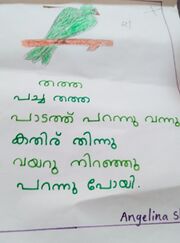 തത്ത
പച്ച തത്ത
പാടത്ത് പറന്നു വന്നു
കതിര് തിന്നു
വയറു നിറഞ്ഞു
പറന്നു പോയി.
Angelina S